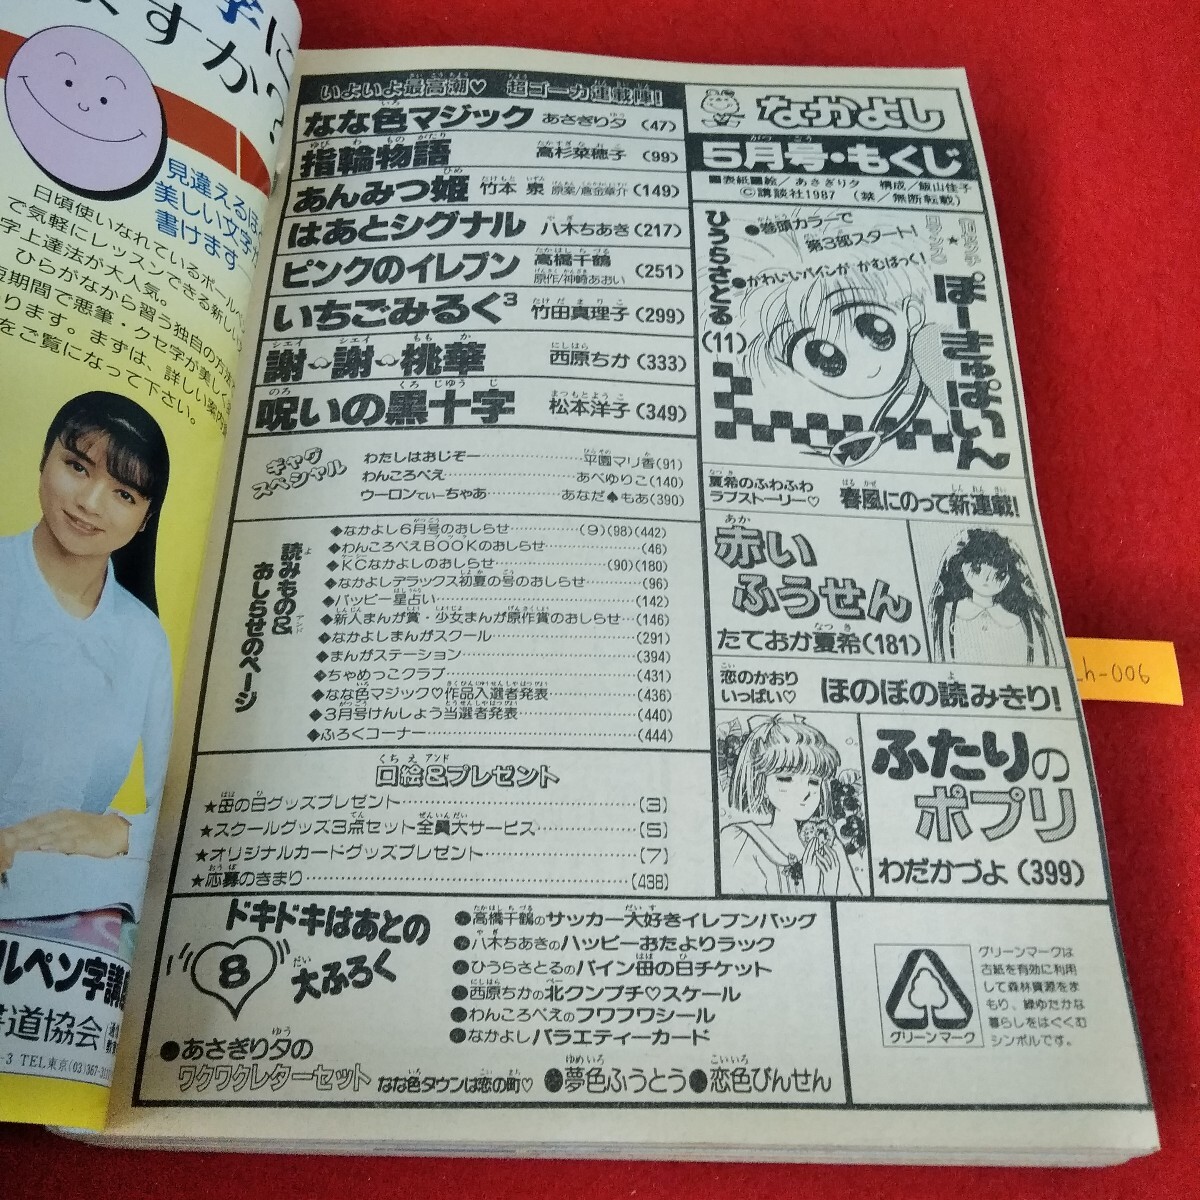 なかよし
5月号・もくじ
■表紙■絵/あさぎり夕 構成/飯山佳子
©講談社1987 (禁/無断転載)
いよいよ最高潮♡ 超ゴーカ連載陣!
なな色マジック あさぎり夕 (47)
指輪物語 高杉菜穂子 (99)
あんみつ姫 竹本泉 原案/倉金章介 (149)
はあとシグナル 八木ちあき (217)
ピンクのイレブン 高橋千鶴 原作/神崎あおい (251)
いちごみるく3 竹田真理子 (299)
謝謝桃華 西原ちか (333)
呪いの黒十字 松本洋子 (349)
ギャグスペシャル
わたしはおじぞー 平園マリ香(91)
わんころべえ あべゆりこ(140)
ウーロンてぃーちゃあ あなだ♠もあ(390)
読みもの&おしらせのページ
◆なかよし6月号のおしらせ (9)(98)(442)
◆わんころべえBOOKのおしらせ (46)
◆KCなかよしのおしらせ (90)(180)
◆なかよしデラックス初夏の号のおしらせ (96)
◆ハッピー星占い (142)
◆新人まんが賞・少女まんが原作賞のおしらせ (146)
◆なかよしまんがスクール (291)
◆まんがステーション (394)
◆ちゃめっこクラブ (431)
◆なな色マジック♡作品入選者発表 (436)
◆3月号けんしょう当選者発表 (440)
◆ふろくコーナー (444)
口絵&プレゼント
★母の日グッズプレゼント (3)
★スクールグッズ3点セット全員大サービス (5)
★オリジナルカードグッズプレゼント (7)
★応募のきまり (438)
●巻頭カラーで第3部スタート!
●かわいいパインが かむはっく!
ぽーきゅぱいん
ひうらさとる (11)
夏希のふわふわラブストーリー♡
春風にのって新連載!
赤いふうせん
たておか夏希(181)
恋のかおりいっぱい♡
ほのぼの読みきり!
ふたりのポプリ
わだかづよ(399)
ドキドキはあとの
8
大ふろく
●高橋千鶴のサッカー大好きイレブンバッグ
●八木ちあきのハッピーおたよりラック
●ひうらさとるのパイン母の日チケット
●西原ちかの北クンプチ♡スケール
●わんころべえのフワフワシール
●なかよしバラエティーカード
●あさぎり夕の
ワクワクレターセット なな色タウンは恋の町♡ ●夢色ふうとう●恋色びんせん
グリーンマーク
グリーンマークは
古紙を有効に利用
して森林資源をま
もり、緑ゆたかな
暮らしをはぐくむ
シンボルです。
h-006
ますか
見違えるほ
美しい文字
書けます
日頃使いなれているボールペ
で気軽にレッスンできる新しい
字上達法が大人気。
ひらがなから習う独自の方法
短期間で悪筆・クセ字が美しく
ります。まずは、詳しい案内
をご覧になって下さい。
ルペン字講
書道協会
-3 TEL東京(03)367-